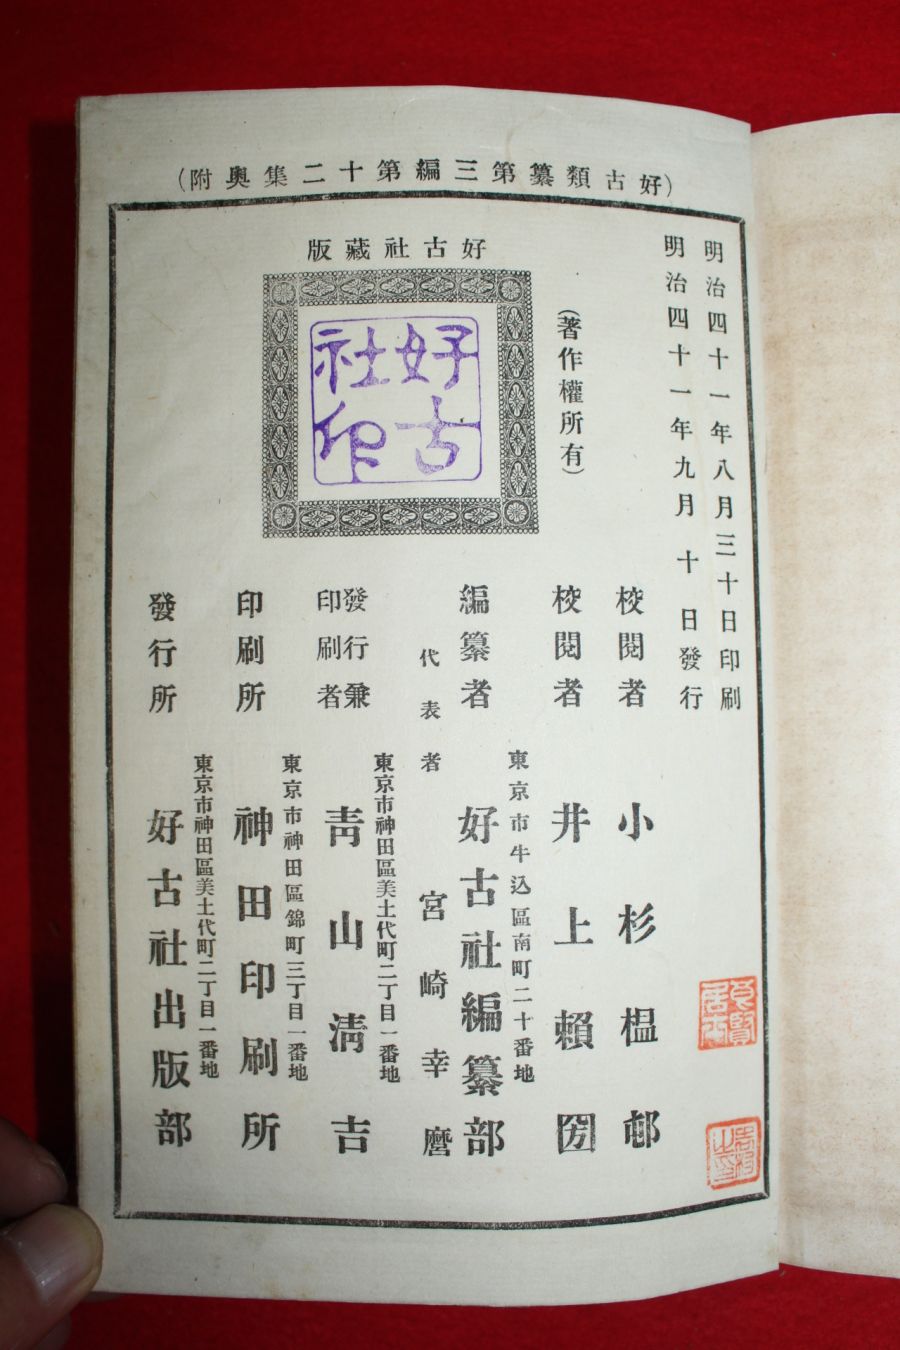 (好古類纂第三編第十二集奥附)
明治四十一年八月三十日印刷
明治四十一年九月十日發行
(著作權所有)
好古社藏版
好古
社印
校閲者 小杉榲邨
校閲者 井上賴圀
東京市牛込區南町二十番地
編纂者 好古社編纂部
代表者 宮崎幸麿
東京市神田區美土代町二丁目一番地
發行兼
印刷者 靑山淸吉
東京市神田區錦町三丁目一番地
印刷所 神田印刷所
東京市神田區美土代町二丁目一番地
發行所 好古社出版部